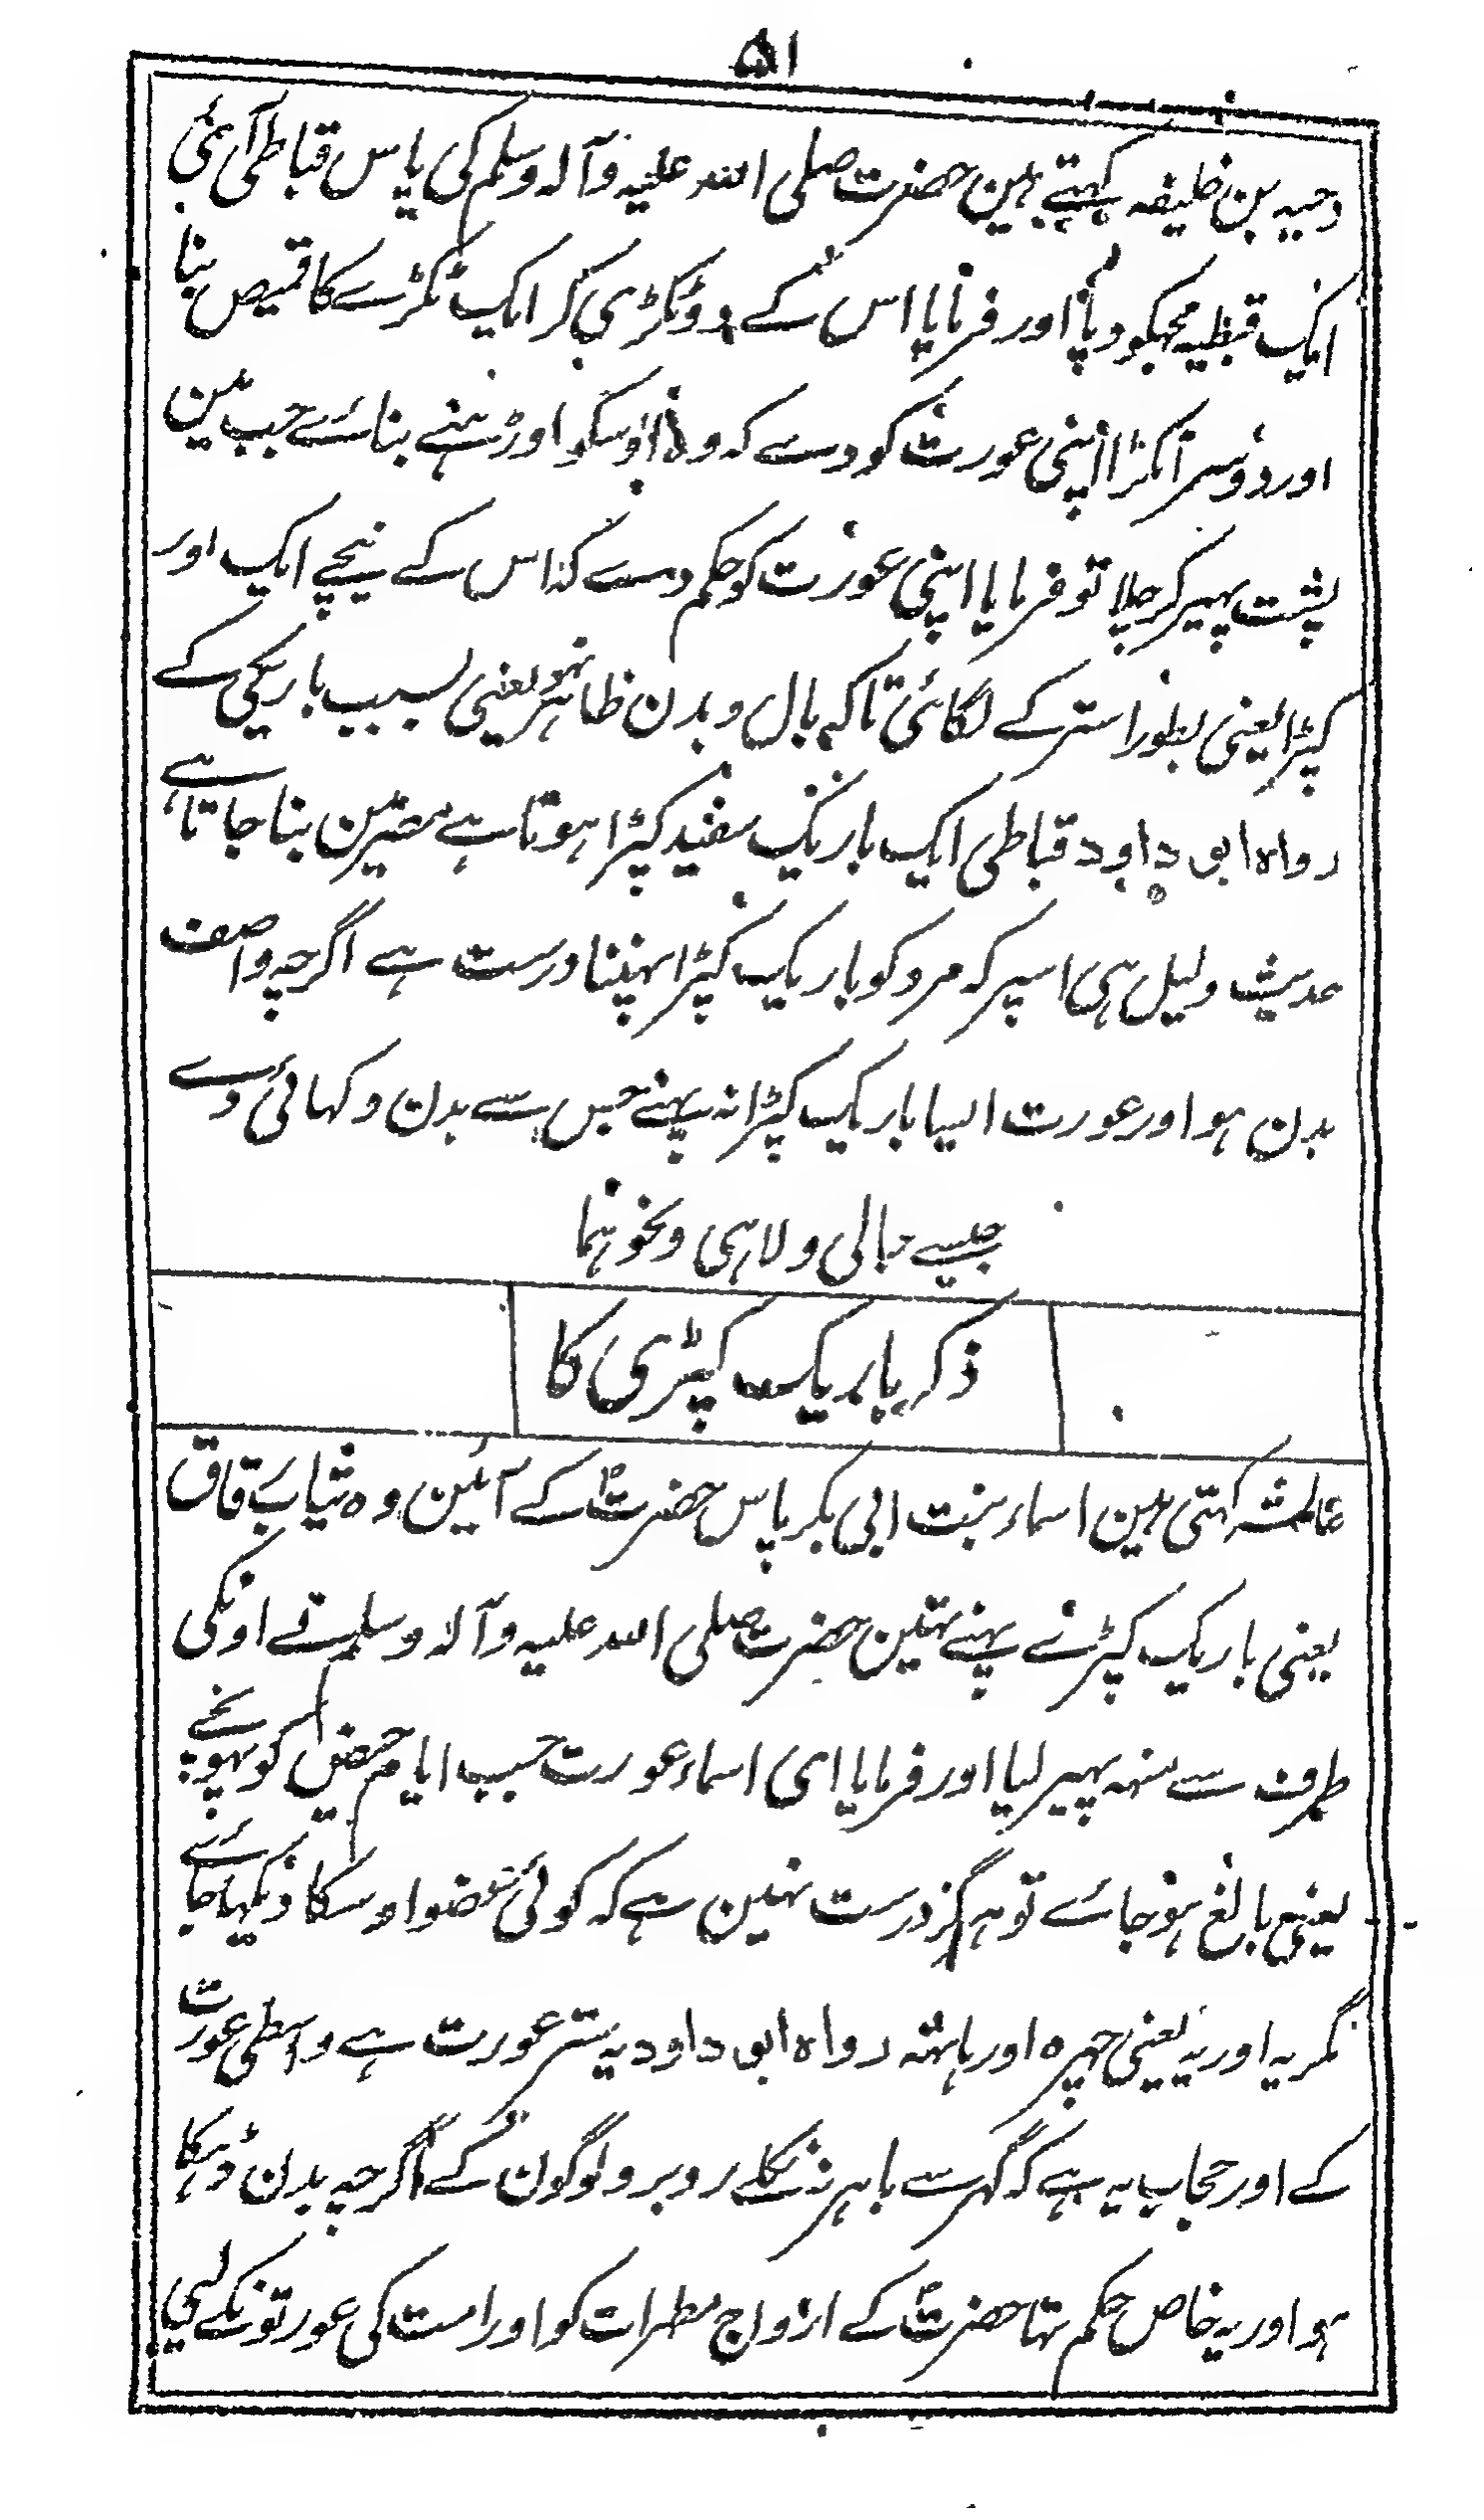 ۵۱
دحیہ بن خلیفہ کہتے ہین حضرت صلی اللہ علیہ وآلہ وسلم کی پاس قباطی آئی
ایک قبطیہ مجہکو دیا اور فرمایا اس کے دو ٹکڑی کر ایک ٹکڑے کا قمیص بنا
اور دوسرا ٹکڑا اپنی عورت کو دے کہ وہ اوسکو اوڑہنے بنائے جب مین
پشت پہیر کر چلا تو فرمایا اپنی عورت کو حکم دے کہ اس کے نیچے ایک اور
کپڑا یعنی بطور استر کے لگائی تاکہ بال و بدن ظاہر نہو یعنی بسبب باریکی کے
رواہ ابو داود قباطی ایک باریک سفید کپڑا ہوتا ہے مصر مین بنا جاتا ہے
حدیث دلیل ہی اسپر کہ مرد کو باریک کپڑا پہننا درست ہے اگرچہ واصف
بدن ہو اور عورت ایسا باریک کپڑا نہ پہنے جس سے بدن دکہائی دے
جیسے جالی ولاہی ونحوہما
ذکر باریک کپڑی کا
عائشہ کہتی ہین اسماء بنت ابی بکر پاس حضرتؐ کے آئین وہ ثیاب رقاق
یعنی باریک کپڑے پہنے تہین حضرت صلی اللہ علیہ وآلہ وسلم نے اونکی
طرف سے منہہ پہیر لیا اور فرمایا ای اسماء عورت جب ایام حیض کو پہونچے
یعنی بالغ ہو جائے تو ہرگز درست نہین ہے کہ کوئی عضو اوسکا دیکہا جائے
مگر یہ اور یہ یعنی چہرہ اور ہاتہہ رواہ ابو داود یہ ستر عورت ہے واسطی عورت
کے اور حجاب یہ ہے کہ گہر سے باہر نہ نکلے روبرو لوگون کے اگرچہ بدن ڈہکا
ہو اور یہ خاص حکم تہا حضرتؐ کے ازواج مطہرات کو اور امت کی عورتونکے لیی